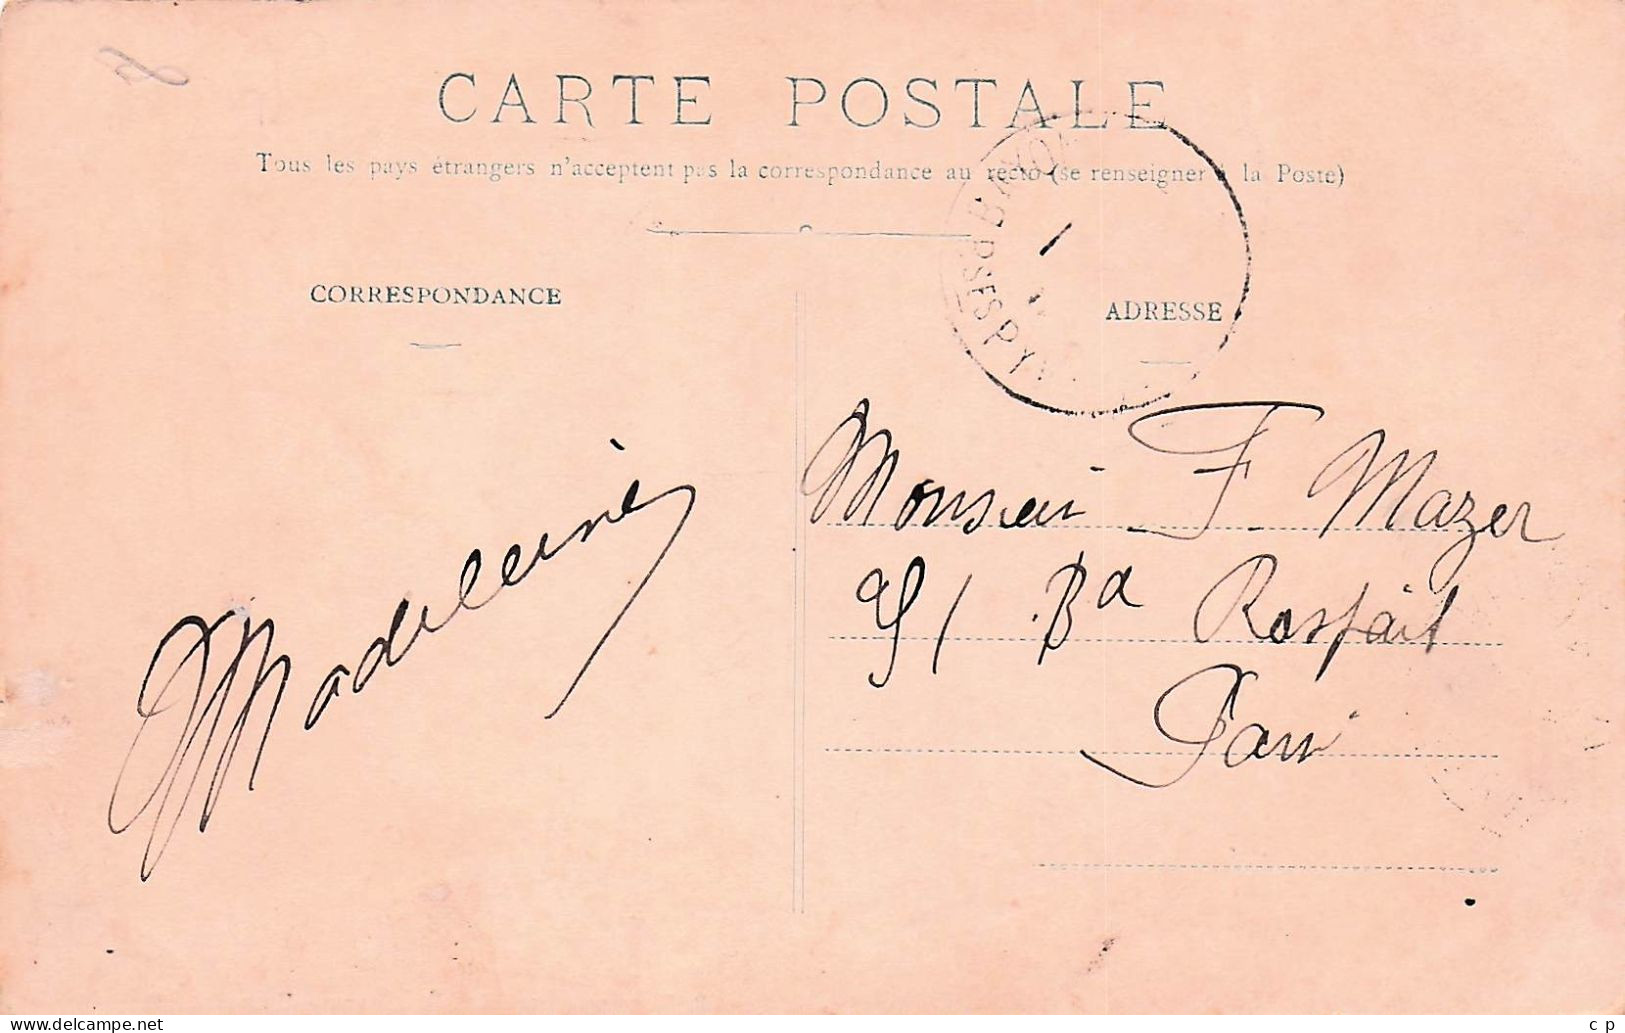 CARTE POSTALE
Tous les pays étrangers n'acceptent pas la correspondance au recto (se renseigner à la Poste)
BAYO
BSES PY
1
CORRESPONDANCE
ADRESSE
Madeleine
Monsieur F. Mazer
Bd Raspail
Paris
www.delcampe.net
c p